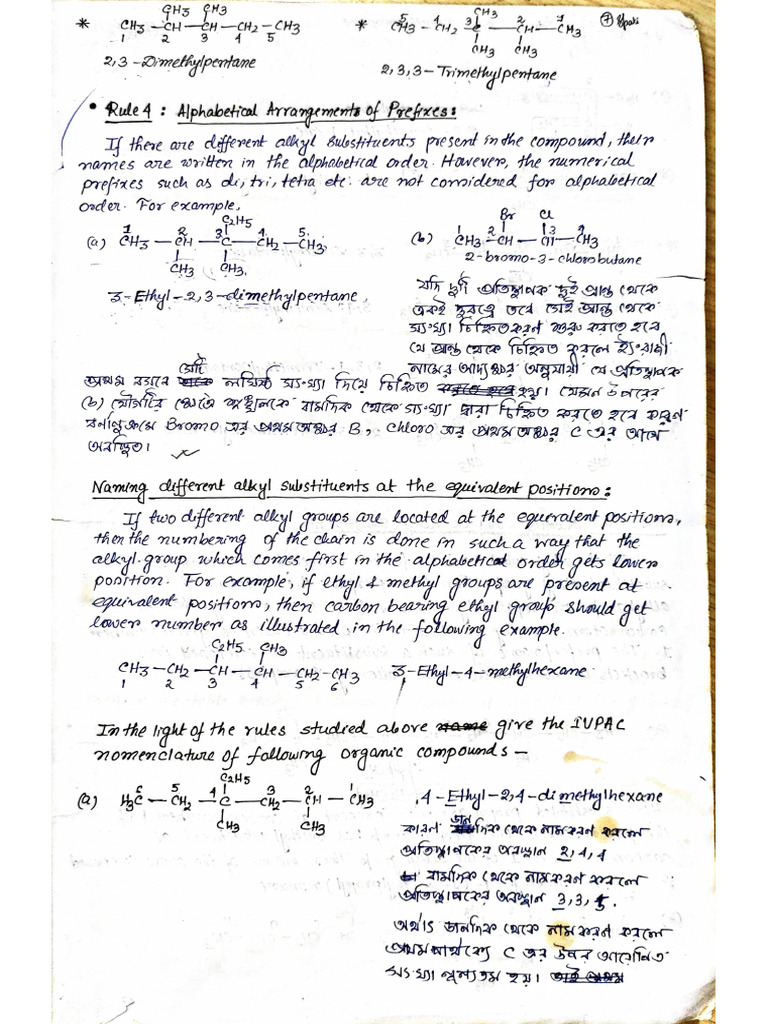 CH3 CH3
* CH3 — CH — CH — CH2 — CH3
1 2 3 4 5
2,3 - Dimethylpentane
CH3
* 5CH3 — 4CH2 — 3C — 2CH — 1CH3
CH3 CH3
2,3,3 - Trimethylpentane
7
• Rule 4 : Alphabetical Arrangements of Prefixes :
If there are different alkyl substituents present in the compound, their
names are written in the alphabetical order. However, the numerical
prefixes such as di, tri, tetra etc. are not considered for alphabetical
order. For example,
C2H5
(a) 1CH3 — 2CH — 3C — 4CH2 — 5CH3
CH3 CH3
3 - Ethyl - 2,3 - dimethylpentane
Br Cl
(b) 1CH3 — 2CH — 3CH — 4CH3
2 - bromo - 3 - chlorobutane
যদি দুটি প্রতিস্থাপক দুই প্রান্ত থেকে
একই দূরত্বে তবে সেই প্রান্ত থেকে
সংখ্যা চিহ্নিতকরণ শুরু করতে হবে
যে প্রান্ত থেকে চিহ্নিত করলে ইংরাজী
নামের আদ্যক্ষর অনুযায়ী যে প্রতিস্থাপক
প্রথম বসবে সেটি লঘিষ্ঠ সংখ্যা দিয়ে চিহ্নিত করতে হবে হয়। যেমন উপরের
(b) যৌগটির ক্ষেত্রে শৃঙ্খলকে বামদিক থেকে সংখ্যা দ্বারা চিহ্নিত করতে হবে কারণ
বর্ণানুক্রমে Bromo এর প্রথম অক্ষর B, Chloro এর প্রথম অক্ষর C এর আগে
অবস্থিত।
Naming different alkyl substituents at the equivalent positions :
If two different alkyl groups are located at the equivalent positions,
then the numbering of the chain is done in such a way that the
alkyl group which comes first in the alphabetical order gets lower
position. For example, if ethyl & methyl groups are present at
equivalent positions, then carbon bearing ethyl group should get
lower number as illustrated in the following example.
C2H5 CH3
CH3 — CH2 — CH — CH — CH2 — CH3 3 - Ethyl - 4 - methylhexane
1 2 3 4 5 6
In the light of the rules studied above name give the IUPAC
nomenclature of following organic compounds —
C2H5
(a) 6H3C — 5CH2 — 4C — 3CH2 — 2CH — 1CH3
CH3 CH3
4 - Ethyl - 2,4 - dimethylhexane
কারণ ডানদিক থেকে নামকরণ করলে
প্রতিস্থাপকের অবস্থান 2,4,4
বামদিক থেকে নামকরণ করলে
প্রতিস্থাপকের অবস্থান 3,3,5.
অর্থাৎ ডানদিক থেকে নামকরণ করলে
প্রথম পার্থক্যে C এর উপর আরোপিত
সংখ্যা ন্যূনতম হয়। তাই প্রথম